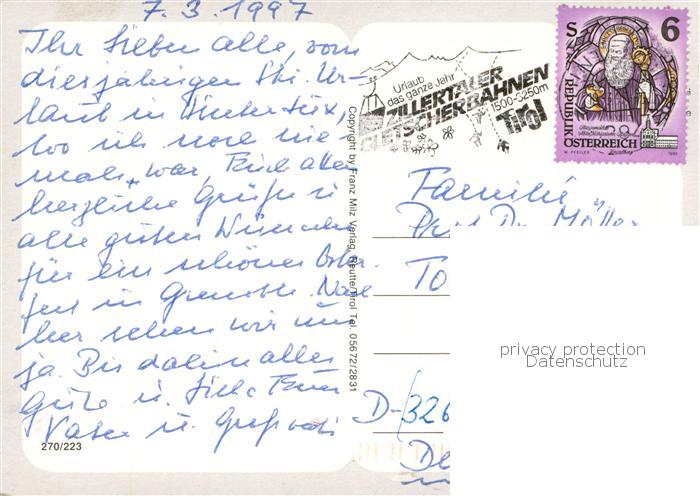 7.3.1997
Ihr Lieben alle, vom
diesjährigen Ski-Ur-
laub in Hintertux,
wo ich noch nie-
mals war, Euch allen
herzliche Grüße u.
alle guten Wünsche
für ein schönes Oster-
fest in Nach-
her sehen wir uns
ja. Bis dahin alles
Gute u. Liebe Euer
Vater u. Großvati
270/223
Copyright by Franz Milz Verlag, Reutte/Tirol Tel. 05672/2831
Urlaub
das ganze Jahr
ZILLERTALER
GLETSCHERBAHNEN
1500-3250m
Tirol
S 6
REPUBLIK
ÖSTERREICH
Familie
Prof. Dr. Müller
To
D-326
De
privacy protection
Datenschutz